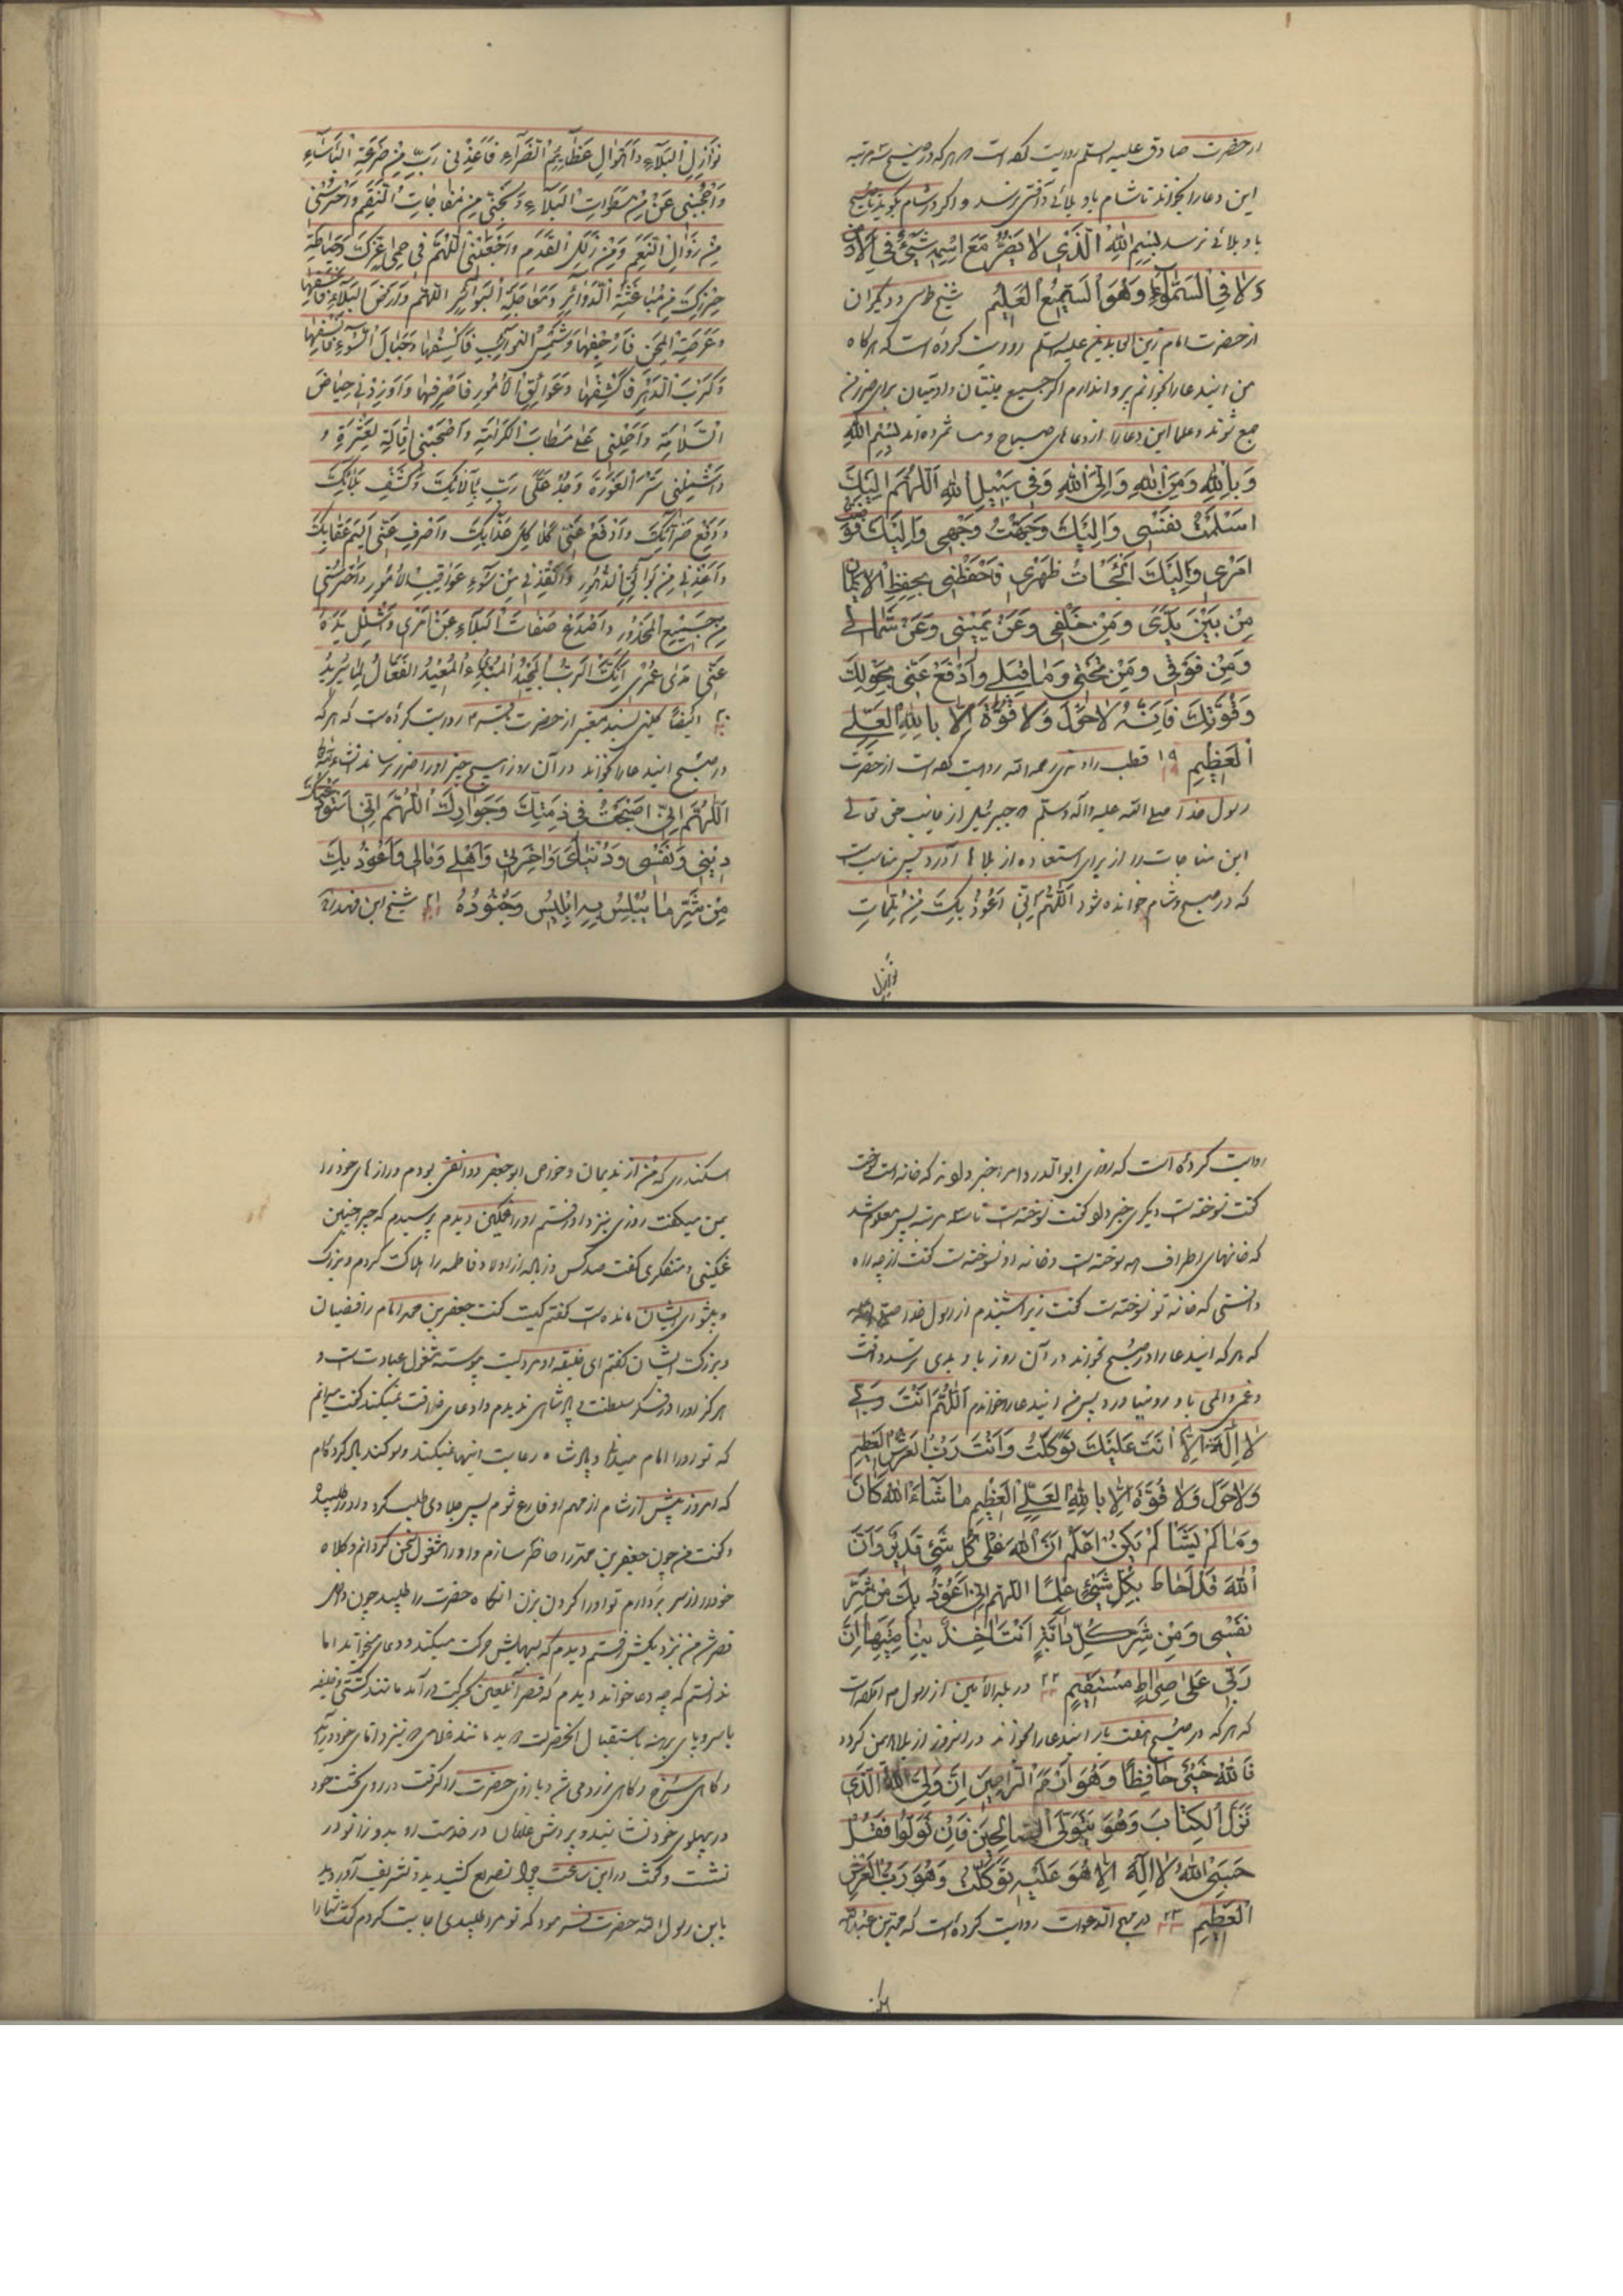 از حضرت صادق علیه السلم روایت کرده است که هر که در صبح سه مرتبه
این دعا را بخواند تا شام باو بلائی و آفتی نرسد و اگر در شام بگوید تا صبح
باو بلائی نرسد بِسْمِ اللهِ الَّذی لا یَضُرُّ مَعَ اسْمِهِ شَیْئٌ فِی الْاَرْضِ
وَلا فِی السَّمآءِ وَهُوَ السَّمیعُ الْعَلیم شیخ طوسی و دیگران
از حضرت امام زین العابدین علیه السلم روایت کرده است که هرگاه
من ایندعا را بخوانم پروا ندارم اگر جمیع جنیان و ادمیان برای ضرر من
جمع شوند و علما این دعا را از دعاهای صباح و مسا شمرده اند بِسْمِ اللهِ
وَبِاللهِ وَمِنَ اللهِ وَاِلَی اللهِ وَفی سَبیلِ اللهِ اَللّهُمَّ اِلَیْکَ
اَسْلَمْتُ نَفْسی وَاِلَیْکَ وَجَّهْتُ وَجْهی وَاِلَیْکَ فَوَّضْتُ
اَمْری وَاِلَیْکَ اَلْجَأْتُ ظَهْری فَاحْفَظْنی بِحِفْظِ الْایمانِ
مِنْ بَیْنِ یَدَیَّ وَمِنْ خَلْفی وَعَنْ یَمینی وَعَنْ شِمالی
وَمِنْ فَوْقی وَمِنْ تَحْتی وَما قِبَلی وَادْفَعْ عَنّی بِحَوْلِکَ
وَقُوَّتِکَ فَاِنَّهُ لا حَوْلَ وَلا قُوَّةَ اِلّا بِاللهِ الْعَلِیِّ
الْعَظیمِ ۱۹ قطب راوندی رحمه الله روایت کرده است از حضرت
رسول خدا صلی الله علیه و اله وسلم که جبرئیل از جانب حق تعالی
این مناجات را از برای استعاذه از بلاها آورد پس مناسبست
که در صبح و شام خوانده شود اَللّهُمَّ اِنّی اَعُوذُ بِکَ مِنْ مُلِمّاتِ
نوازل
نَوازِلِ الْبَلآءِ وَاَهْوالِ عَظآئِمِ الضَّرّآءِ فَاَعِذْنی رَبِّ مِنْ صَرْعَةِ الْبَأْسآءِ
وَاحْجُبْنی مِنْ سَطَواتِ الْبَلآءِ وَنَجِّنی مِنْ مُفاجاتِ النِّقَمِ وَاحْرُسْنی
مِنْ زَوالِ النِّعَمِ وَمِنْ زَلَلِ الْقَدَمِ وَاجْعَلْنی اللّهُمَّ فی حِمی عِزِّکَ وَحِیاطَةِ
حِرْزِکَ مِنْ مُباغَتَةِ الدَّوآئِرِ وَمُعاجَلَةِ الْبَوادِرِ اللّهُمَّ وَاَرْضَ الْبَلآءِ فَاخْسِفْها
وَعَرْصَةَ الْمِحَنِ فَارْجُفْها وَشَمْسَ النَّوآئِبِ فَاکْسِفْها وَجِبالَ السُّوءِ فَانْسِفْها
وَکُرَبَ الدَّهْرِ فَاکْشِفْها وَعَوآئِقَ الْاُمُورِ فَاصْرِفْها وَاَوْرِدْنی حِیاضَ
السَّلامَةِ وَاحْمِلْنی عَلی مَطایَا الْکَرامَةِ وَاصْحَبْنی اِقالَةَ الْعَثْرَةِ وَ
وَاشْمِلْنی سَتْرَ الْعَوْرَةِ وَجُدْ عَلَیَّ رَبِّ بِآلائِکَ وَکَشْفِ بَلائِکَ
وَدَفْعِ ضَرّآئِکَ وَادْفَعْ عَنّی کَلاکِلَ عَذابِکَ وَاصْرِفْ عَنّی اَلیمَ عِقابِکَ
وَاَعِذْنی مِنْ بَوآئِقِ الدُّهُورِ وَاَنْقِذْنی مِنْ سُوءِ عَواقِبِ الْاُمُورِ وَاحْرُسْنی
مِنْ جَمیعِ الْمَحْذُورِ وَاصْدَعْ صَفاتَ الْبَلآءِ عَنْ اَمْری وَاشْلُلْ یَدَهُ
عَنّی مَدی عُمْری اِنَّکَ الرَّبُّ الْمَجیدُ الْمُبْدِئُ الْمُعیدُ الْفَعّالُ لِما یُریدُ
۲۰ ایضًا کلینی بسند معتبر از حضرت باقر ع روایت کرده است که هر که
در صبح ایندعا را بخواند در آن روز هیچ چیز او را ضرر نرساند انشاءالله
اَللّهُمَّ اِنّی اَصْبَحْتُ فی ذِمَّتِکَ وَجِوارِکَ اَللّهُمَّ اِنّی اَسْتَوْدِعُکَ
دینی وَنَفْسی وَدُنْیایَ وَاخِرَتی وَاَهْلی وَمالی وَاَعُوذُ بِکَ
مِنْ شَرِّ ما یُبْلِسُ بِهِ اِبْلیسُ وَجُنُودُهُ ۲۱ شیخ ابن فهد ره
روایت کرده است که روزی ابوالدردا را خبر دادند که خانه ات سوخت
گفت نسوخته است دیگری خبر داد گفت نسوخته است تا سه مرتبه پس معلوم شد
که خانهای اطراف همه سوخته است و خانه او نسوخته است گفتند از چه راه
دانستی که خانه تو نسوخته است گفت زیرا شنیدم از رسول خدا صلی الله علیه
که هر که ایندعا را در صبح بخواند در آن روز باو بدی نرسد و افت
و غمی و المی باو رو نیاورد پس من ایندعا را خواندم اَللّهُمَّ اَنْتَ رَبّی
لا اِلهَ اِلّا اَنْتَ عَلَیْکَ تَوَکَّلْتُ وَاَنْتَ رَبُّ الْعَرْشِ الْعَظیمِ
وَلا حَوْلَ وَلا قُوَّةَ اِلّا بِاللهِ الْعَلِیِّ الْعَظیمِ ما شآءَ اللهُ کانَ
وَما لَمْ یَشَأْ لَمْ یَکُنْ اَعْلَمُ اَنَّ اللهَ عَلی کُلِّ شَیْئٍ قَدیرٌ وَاَنَّ
اللهَ قَدْ اَحاطَ بِکُلِّ شَیْئٍ عِلْمًا اللّهُمَّ اِنّی اَعُوذُ بِکَ مِنْ شَرِّ
نَفْسی وَمِنْ شَرِّ کُلِّ دآبَّةٍ اَنْتَ اخِذٌ بِناصِیَتِها اِنَّ
رَبّی عَلی صِراطٍ مُسْتَقیمٍ ۲۲ در بلد الامین از رسول ص
که هر که در صبح هفت بار ایندعا را بخواند در انروز از بلاها ایمن گردد
فَاللهُ خَیْرٌ حافِظًا وَهُوَ اَرْحَمُ الرّاحِمینَ اِنَّ وَلِیِّیَ اللهُ الَّذی
نَزَّلَ الْکِتابَ وَهُوَ یَتَوَلَّی الصّالِحینَ فَاِنْ تَوَلَّوْا فَقُلْ
حَسْبِیَ اللهُ لا اِلهَ اِلّا هُوَ عَلَیْهِ تَوَکَّلْتُ وَهُوَ رَبُّ الْعَرْشِ
الْعَظیمِ ۲۳ در مهج الدعوات روایت کرده است که محمد بن عبدالله
اسکندری که من از ندیمان و خواص ابوجعفر دوانقی بودم و رازهای خود را
بمن میگفت روزی بنزد او رفتم او را غمگین دیدم پرسیدم که چرا چنین
غمگینی و متفکری گفت صد کس و زیاده از اولاد فاطمه را هلاک کردم و بزرگ
و پیشوای ایشان مانده است گفتم کیست گفت جعفر بن محمد امام رافضیان
و بزرگ ایشان گفتم ای خلیفه او مردیست پیوسته مشغول عبادت است و
هرگز او را در فکر سلطنت و پادشاهی ندیدم و ادعای خلافت نمیکند گفت میدانم
که تو او را امام میدانی و پادشاه رعایت اینها نمیکند و سوگند یاد کرده ام
که امروز پیش از شام از مهم او فارغ شوم پس جلادی طلب کرد و او را طلبید
و گفت من چون جعفر بن محمد را حاضر سازم و او را مشغول سخن گردانم و کلاه
خود را از سر بردارم تو او را گردن بزن انگاه حضرت را طلبید چون داخل
قصر شد من نزدیکش رفتم دیدم که لبهایش حرکت میکند و دعای میخواند اما
ندانستم که چه دعا خواند دیدم که قصر آنلعین بحرکت درآمد مانند کشتی و خلیفه
با سر و پای برهنه باستقبال انحضرت دوید مانند غلامی که نزد اقای خود درآید
و گاهی سرخ و گاهی زرد می شد و بازوی حضرت را گرفت و بر روی تخت خود
در پهلوی خود نشانید و بروش غلامان در خدمت او بدو زانو در
نشست و گفت در این ساعت چرا تصدیع کشیدید و تشریف آوردید
یابن رسول الله حضرت فرمود که تو مرا طلبیدی اجابت کردم گفت شما را